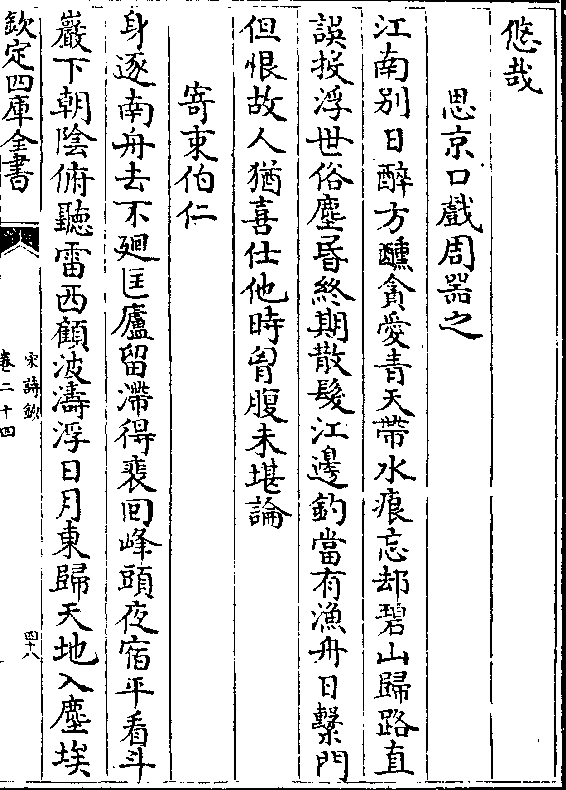 悠哉
思京口戲周器之
江南别日醉方醺貪愛青天帶水痕忘却碧山歸路直
誤投浮世俗塵昬終期散髮江邊釣當有漁舟日繫門
但恨故人猶喜仕他時胷腹未堪論
寄束伯仁
身逐南舟去不廻匡廬留滯得裴回峰頭夜宿平看斗
巖下朝陰俯聽雷西顧波濤浮日月東歸天地入塵埃
欽定四庫全書
宋詩鈔
卷二十四
四十八